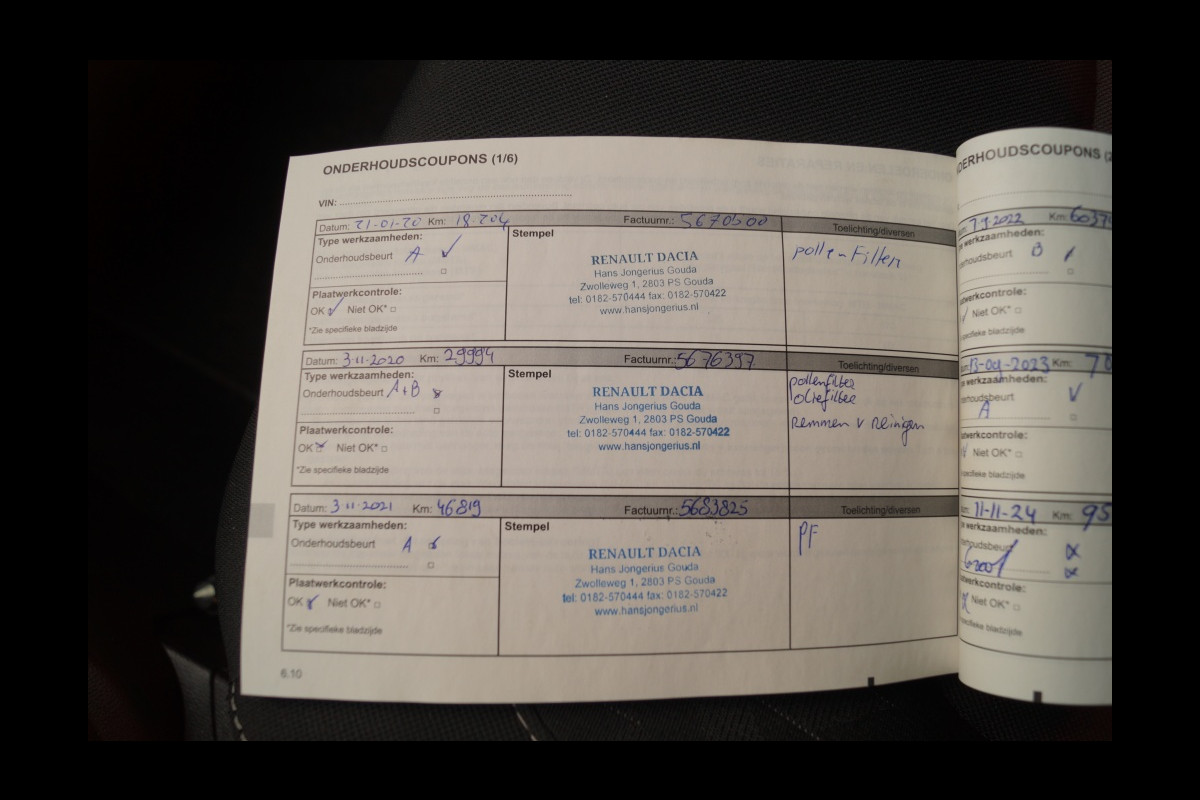 ONDERHOUDSCOUPONS (1/6)
VIN:
Datum: 21-01-20 Km: 18204 Factuurnr.: 5670500 Toelichting/diversen
Type werkzaamheden:
Onderhoudsbeurt A ✓
Stempel
RENAULT DACIA
Hans Jongerius Gouda
Zwolleweg 1, 2803 PS Gouda
tel: 0182-570444 fax: 0182-570422
www.hansjongerius.nl
pollen-Filter
Plaatwerkcontrole:
OK ✓ Niet OK* □
*Zie specifieke bladzijde
Datum: 3-11-2020 Km: 29994 Factuurnr.: 5676397 Toelichting/diversen
Type werkzaamheden:
Onderhoudsbeurt A+B
Stempel
RENAULT DACIA
Hans Jongerius Gouda
Zwolleweg 1, 2803 PS Gouda
tel: 0182-570444 fax: 0182-570422
www.hansjongerius.nl
pollenfilter
oliefilter
Remmen v Reinigen
Plaatwerkcontrole:
OK Niet OK* □
*Zie specifieke bladzijde
Datum: 3-11-2021 Km: 46819 Factuurnr.: 5683825 Toelichting/diversen
Type werkzaamheden:
Onderhoudsbeurt A
Stempel
RENAULT DACIA
Hans Jongerius Gouda
Zwolleweg 1, 2803 PS Gouda
tel: 0182-570444 fax: 0182-570422
www.hansjongerius.nl
PF
Plaatwerkcontrole:
OK Niet OK* □
*Zie specifieke bladzijde
6.10
DERHOUDSCOUPONS (2
Km: 6037
werkzaamheden:
derhoudsbeurt B
atwerkcontrole:
Niet OK* □
specifieke bladzijde
13-04-2023 Km: 70
werkzaamheden:
rhoudsbeurt
A
atwerkcontrole:
Niet OK* □
specifieke bladzijde
11-11-24 Km: 95
werkzaamheden:
erhoudsbeurt
Groot
atwerkcontrole:
Niet OK* □
specifieke bladzijde